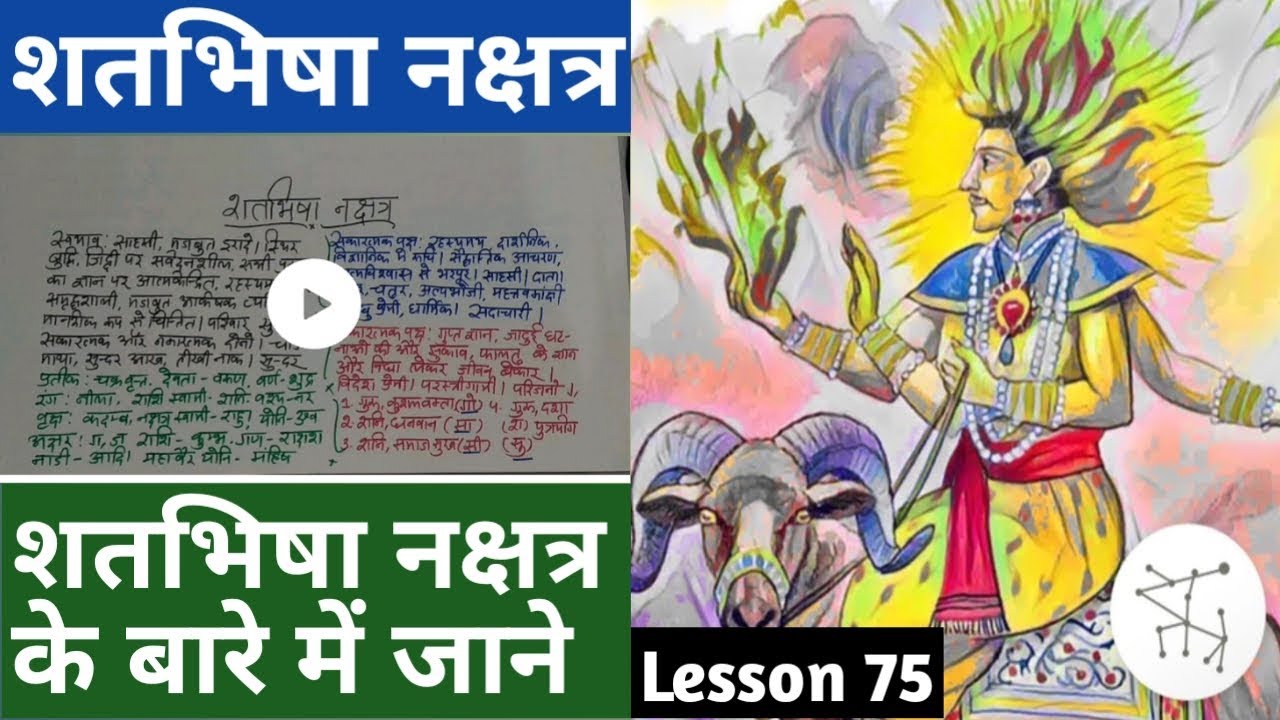 शतभिषा नक्षत्र
शतभिषा नक्षत्र
स्वभाव: साहसी, मजबूत इरादे। स्थिर
बुद्धि, जिद्दी पर संवेदनशील, सभी
का ज्ञान पर आत्मकेन्द्रित, रहस्यमय
समृद्धशाली, मजबूत आकर्षक
मानसीक रूप से चिंतित। परिवार
सकारत्मक और नकारत्मक दोनो।
माथा, सुन्दर आख, तीखी नाक। सुन्दर
प्रतीक: चक्रवृत्त, देवता - वरुण, वर्ण - शुद्र
रंग: नीला, राशि स्वामी - शनि, वश्य - नर
वृक्ष: कदम्ब, नक्षत्र स्वामी - राहु, योनि - अश्व
अक्षर: ग, ज राशि - कुम्भ, गण - राक्षस
नाडी - आदि। महावैर योनि - महिष
सकारत्मक पक्ष: रहस्यमय, दार्शनिक,
विज्ञानिक में रूचि। सैद्धांतिक आचरण,
से भरपूर। साहसी। दाता।
चतुर, अल्पभोजी, महत्वकांक्षी
प्रेमी, धार्मिक। सदाचारी।
पक्ष: गुप्त ज्ञान, जादुई घट-
नाओ की और झुकाव, फालतु के ज्ञान
और विद्या लेकर जीवन बेकार।
विदेश प्रेमी। परस्त्रीगामी।
1. गुरू, कुशलवक्ता (गो) ४. गुरू, दशा
2. शनि, धनवान (सा) पुत्रयोग
3. शनि, समाज मुख (सी) (सू)
शतभिषा नक्षत्र
के बारे में जाने
Lesson 75